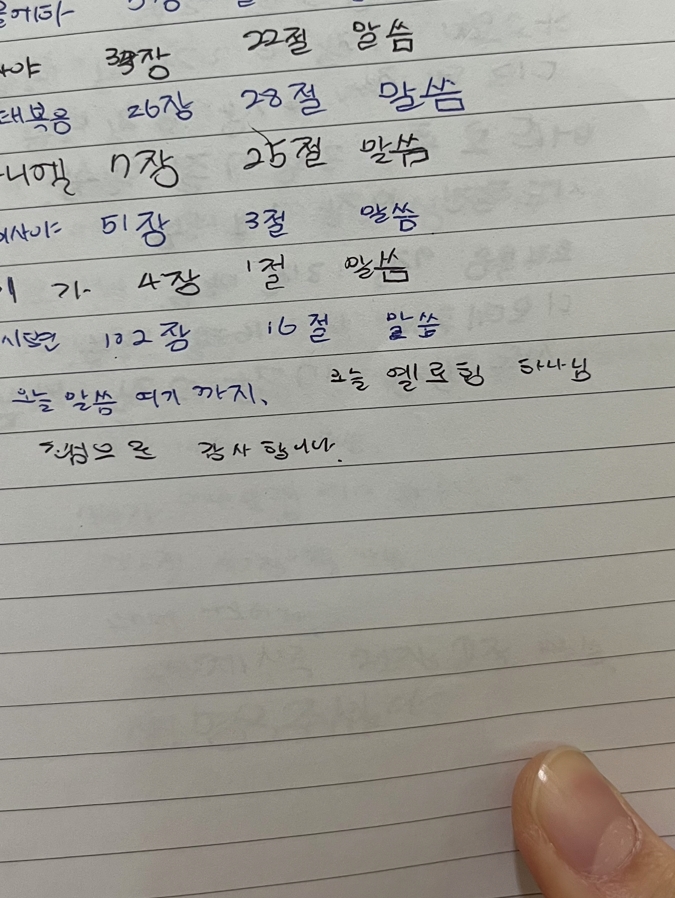 22절 말씀
26장 28절 말씀
7장 25절 말씀
51장 3절 말씀
가 4장 1절 말씀
시편 102장 16절 말씀
오늘 말씀 여기 까지. 오늘 엘로힘 하나님
감사 합니다.